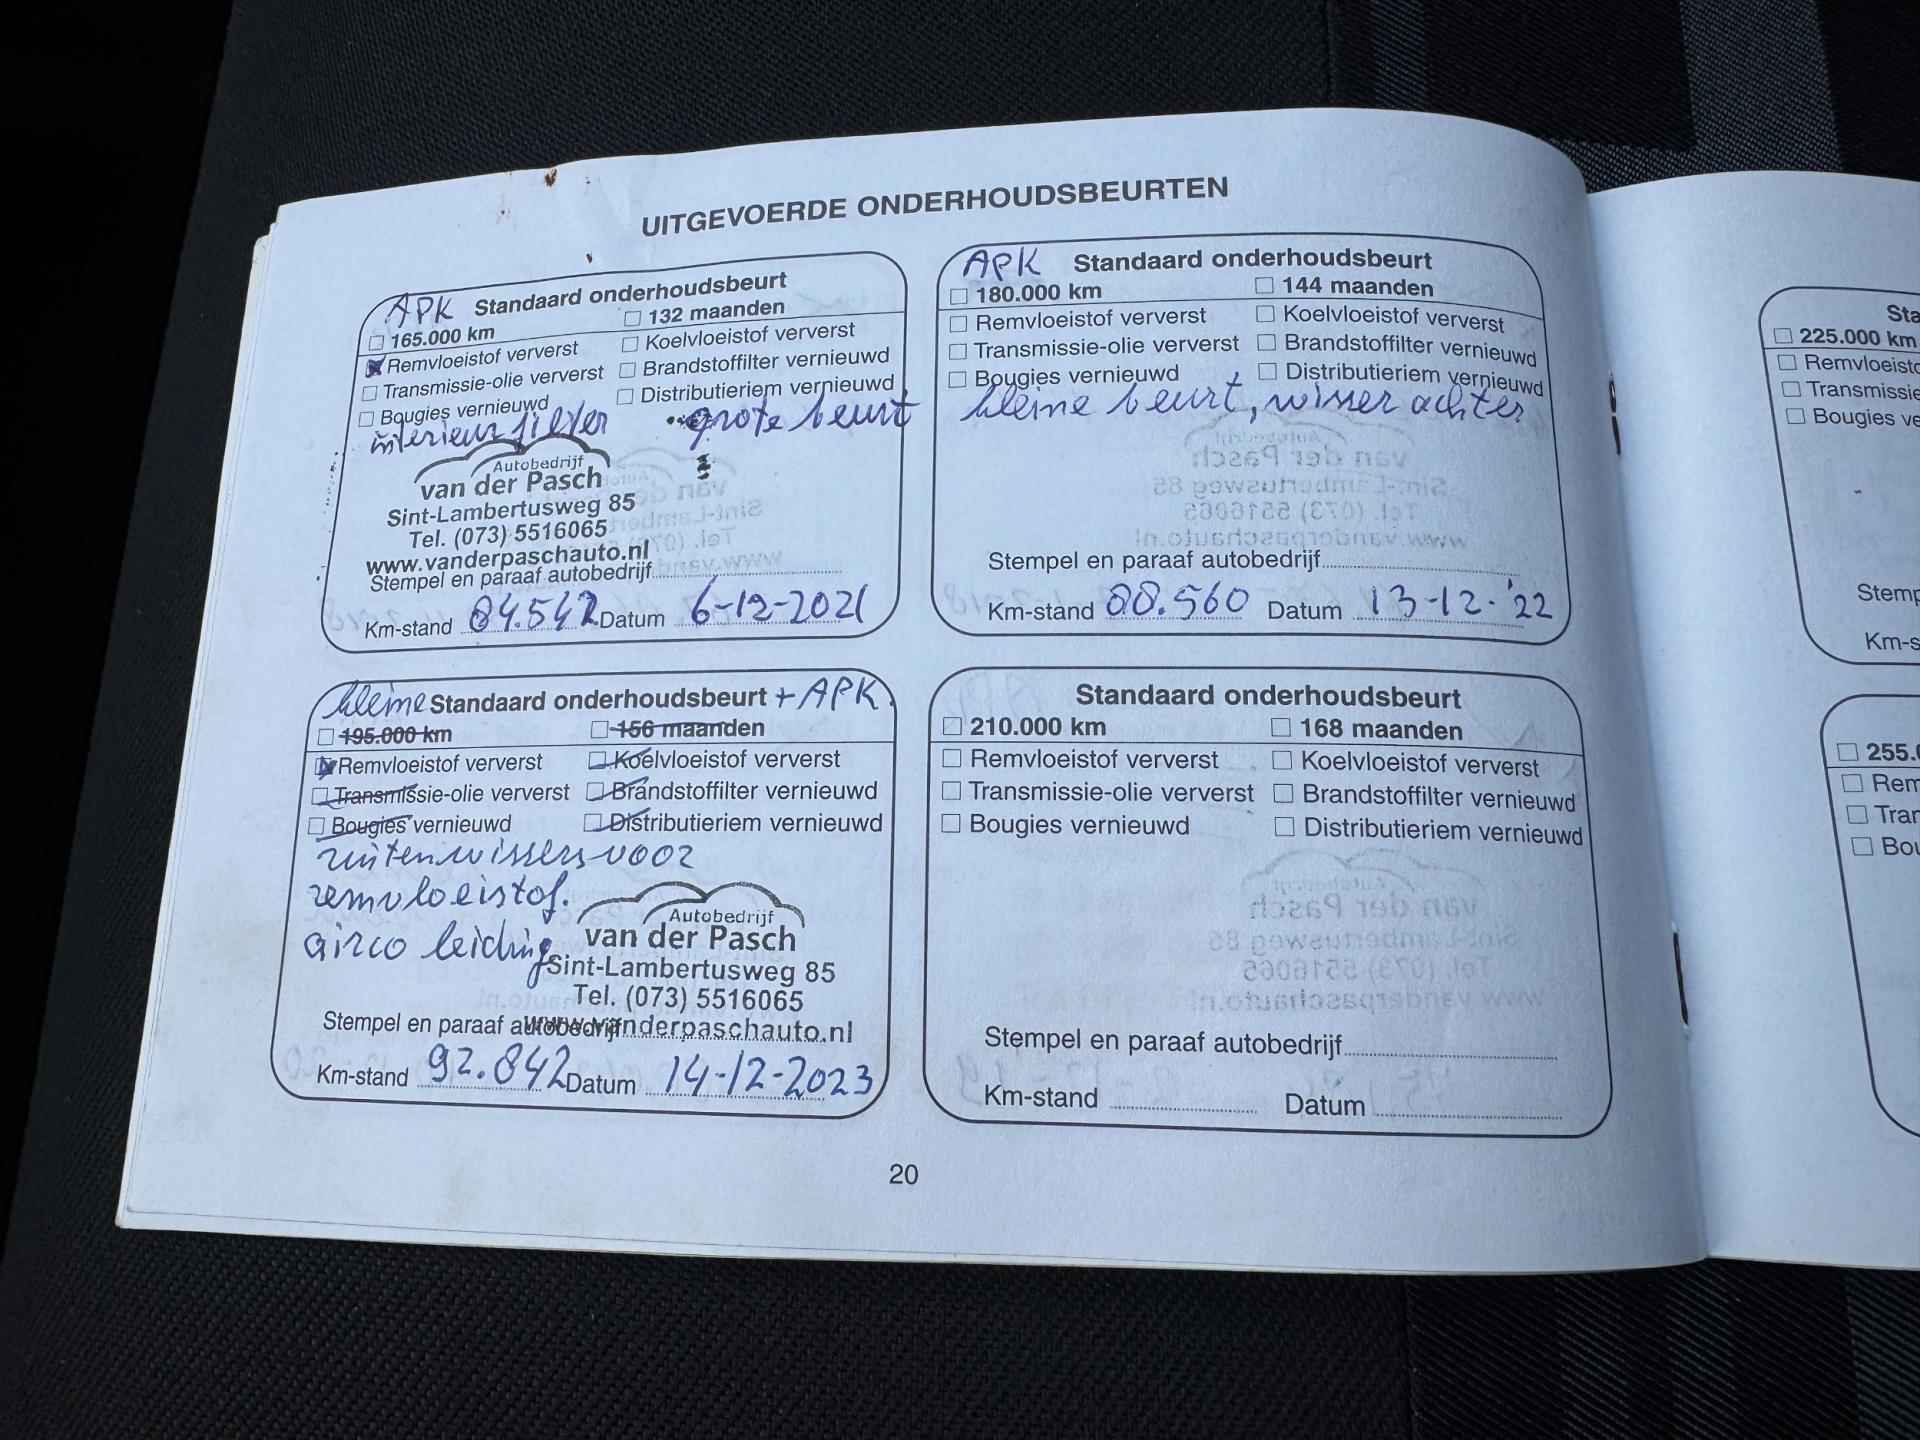 UITGEVOERDE ONDERHOUDSBEURTEN
APK Standaard onderhoudsbeurt
165.000 km 132 maanden
Remvloeistof ververst Koelvloeistof ververst
Transmissie-olie ververst Brandstoffilter vernieuwd
Bougies vernieuwd Distributieriem vernieuwd
interieurfilter grote beurt
Autobedrijf
van der Pasch
Sint-Lambertusweg 85
Tel. (073) 5516065
www.vanderpaschauto.nl
Stempel en paraaf autobedrijf
Km-stand 84.542 Datum 6-12-2021
APK Standaard onderhoudsbeurt
180.000 km 144 maanden
Remvloeistof ververst Koelvloeistof ververst
Transmissie-olie ververst Brandstoffilter vernieuwd
Bougies vernieuwd Distributieriem vernieuwd
kleine beurt, wisser achter
Stempel en paraaf autobedrijf
Km-stand 88.560 Datum 13-12-'22
kleine Standaard onderhoudsbeurt + APK
195.000 km 156 maanden
Remvloeistof ververst Koelvloeistof ververst
Transmissie-olie ververst Brandstoffilter vernieuwd
Bougies vernieuwd Distributieriem vernieuwd
ruitenwissers voor
remvloeistof.
airco leiding
Autobedrijf
van der Pasch
Sint-Lambertusweg 85
Tel. (073) 5516065
www.vanderpaschauto.nl
Stempel en paraaf autobedrijf
Km-stand 92.842 Datum 14-12-2023
Standaard onderhoudsbeurt
210.000 km 168 maanden
Remvloeistof ververst Koelvloeistof ververst
Transmissie-olie ververst Brandstoffilter vernieuwd
Bougies vernieuwd Distributieriem vernieuwd
Stempel en paraaf autobedrijf
Km-stand Datum
20
Sta
225.000 km
Remvloeisto
Transmissie
Bougies ve
Stemp
Km-s
255.0
Rem
Tran
Bou